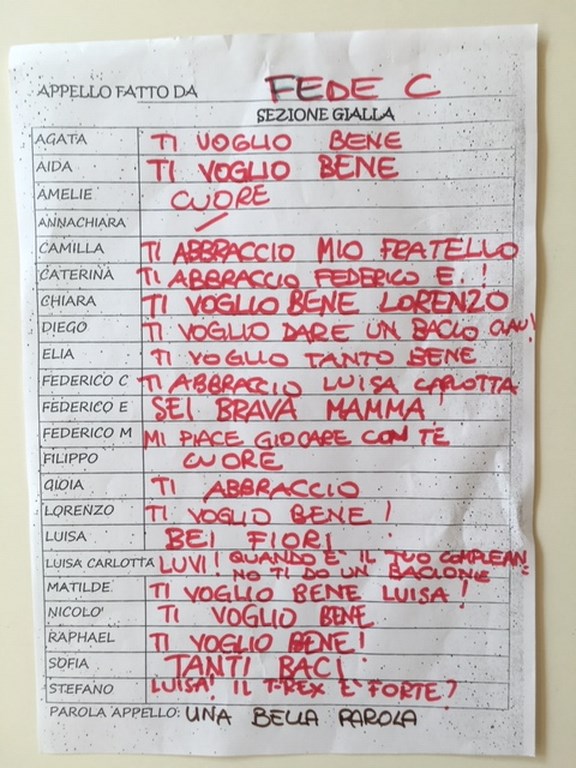 APPELLO FATTO DA FEDE C
SEZIONE GIALLA
AGATA TI VOGLIO BENE
AIDA TI VOGLIO BENE
AMELIE CUORE
ANNACHIARA /
CAMILLA TI ABBRACCIO MIO FRATELLO
CATERINA TI ABBRACCIO FEDERICO E. !
CHIARA TI VOGLIO BENE LORENZO
DIEGO TI VOGLIO DARE UN BACIO CIAU!
ELIA TI VOGLIO TANTO BENE
FEDERICO C TI ABBRACCIO LUISA CARLOTTA
FEDERICO E SEI BRAVA MAMMA
FEDERICO M MI PIACE GIOCARE CON TE
FILIPPO CUORE
GIOIA TI ABBRACCIO
LORENZO TI VOGLIO BENE !
LUISA BEI FIORI
LUISA CARLOTTA LUVI! QUANDO E' IL TUO COMPLEAN
NO TI DO UN BACIONE
MATILDE TI VOGLIO BENE LUISA !
NICOLO' TI VOGLIO BENE
RAPHAEL TI VOGLIO BENE!
SOFIA TANTI BACI
STEFANO LUISA! IL T-REX E' FORTE?
PAROLA APPELLO: UNA BELLA PAROLA